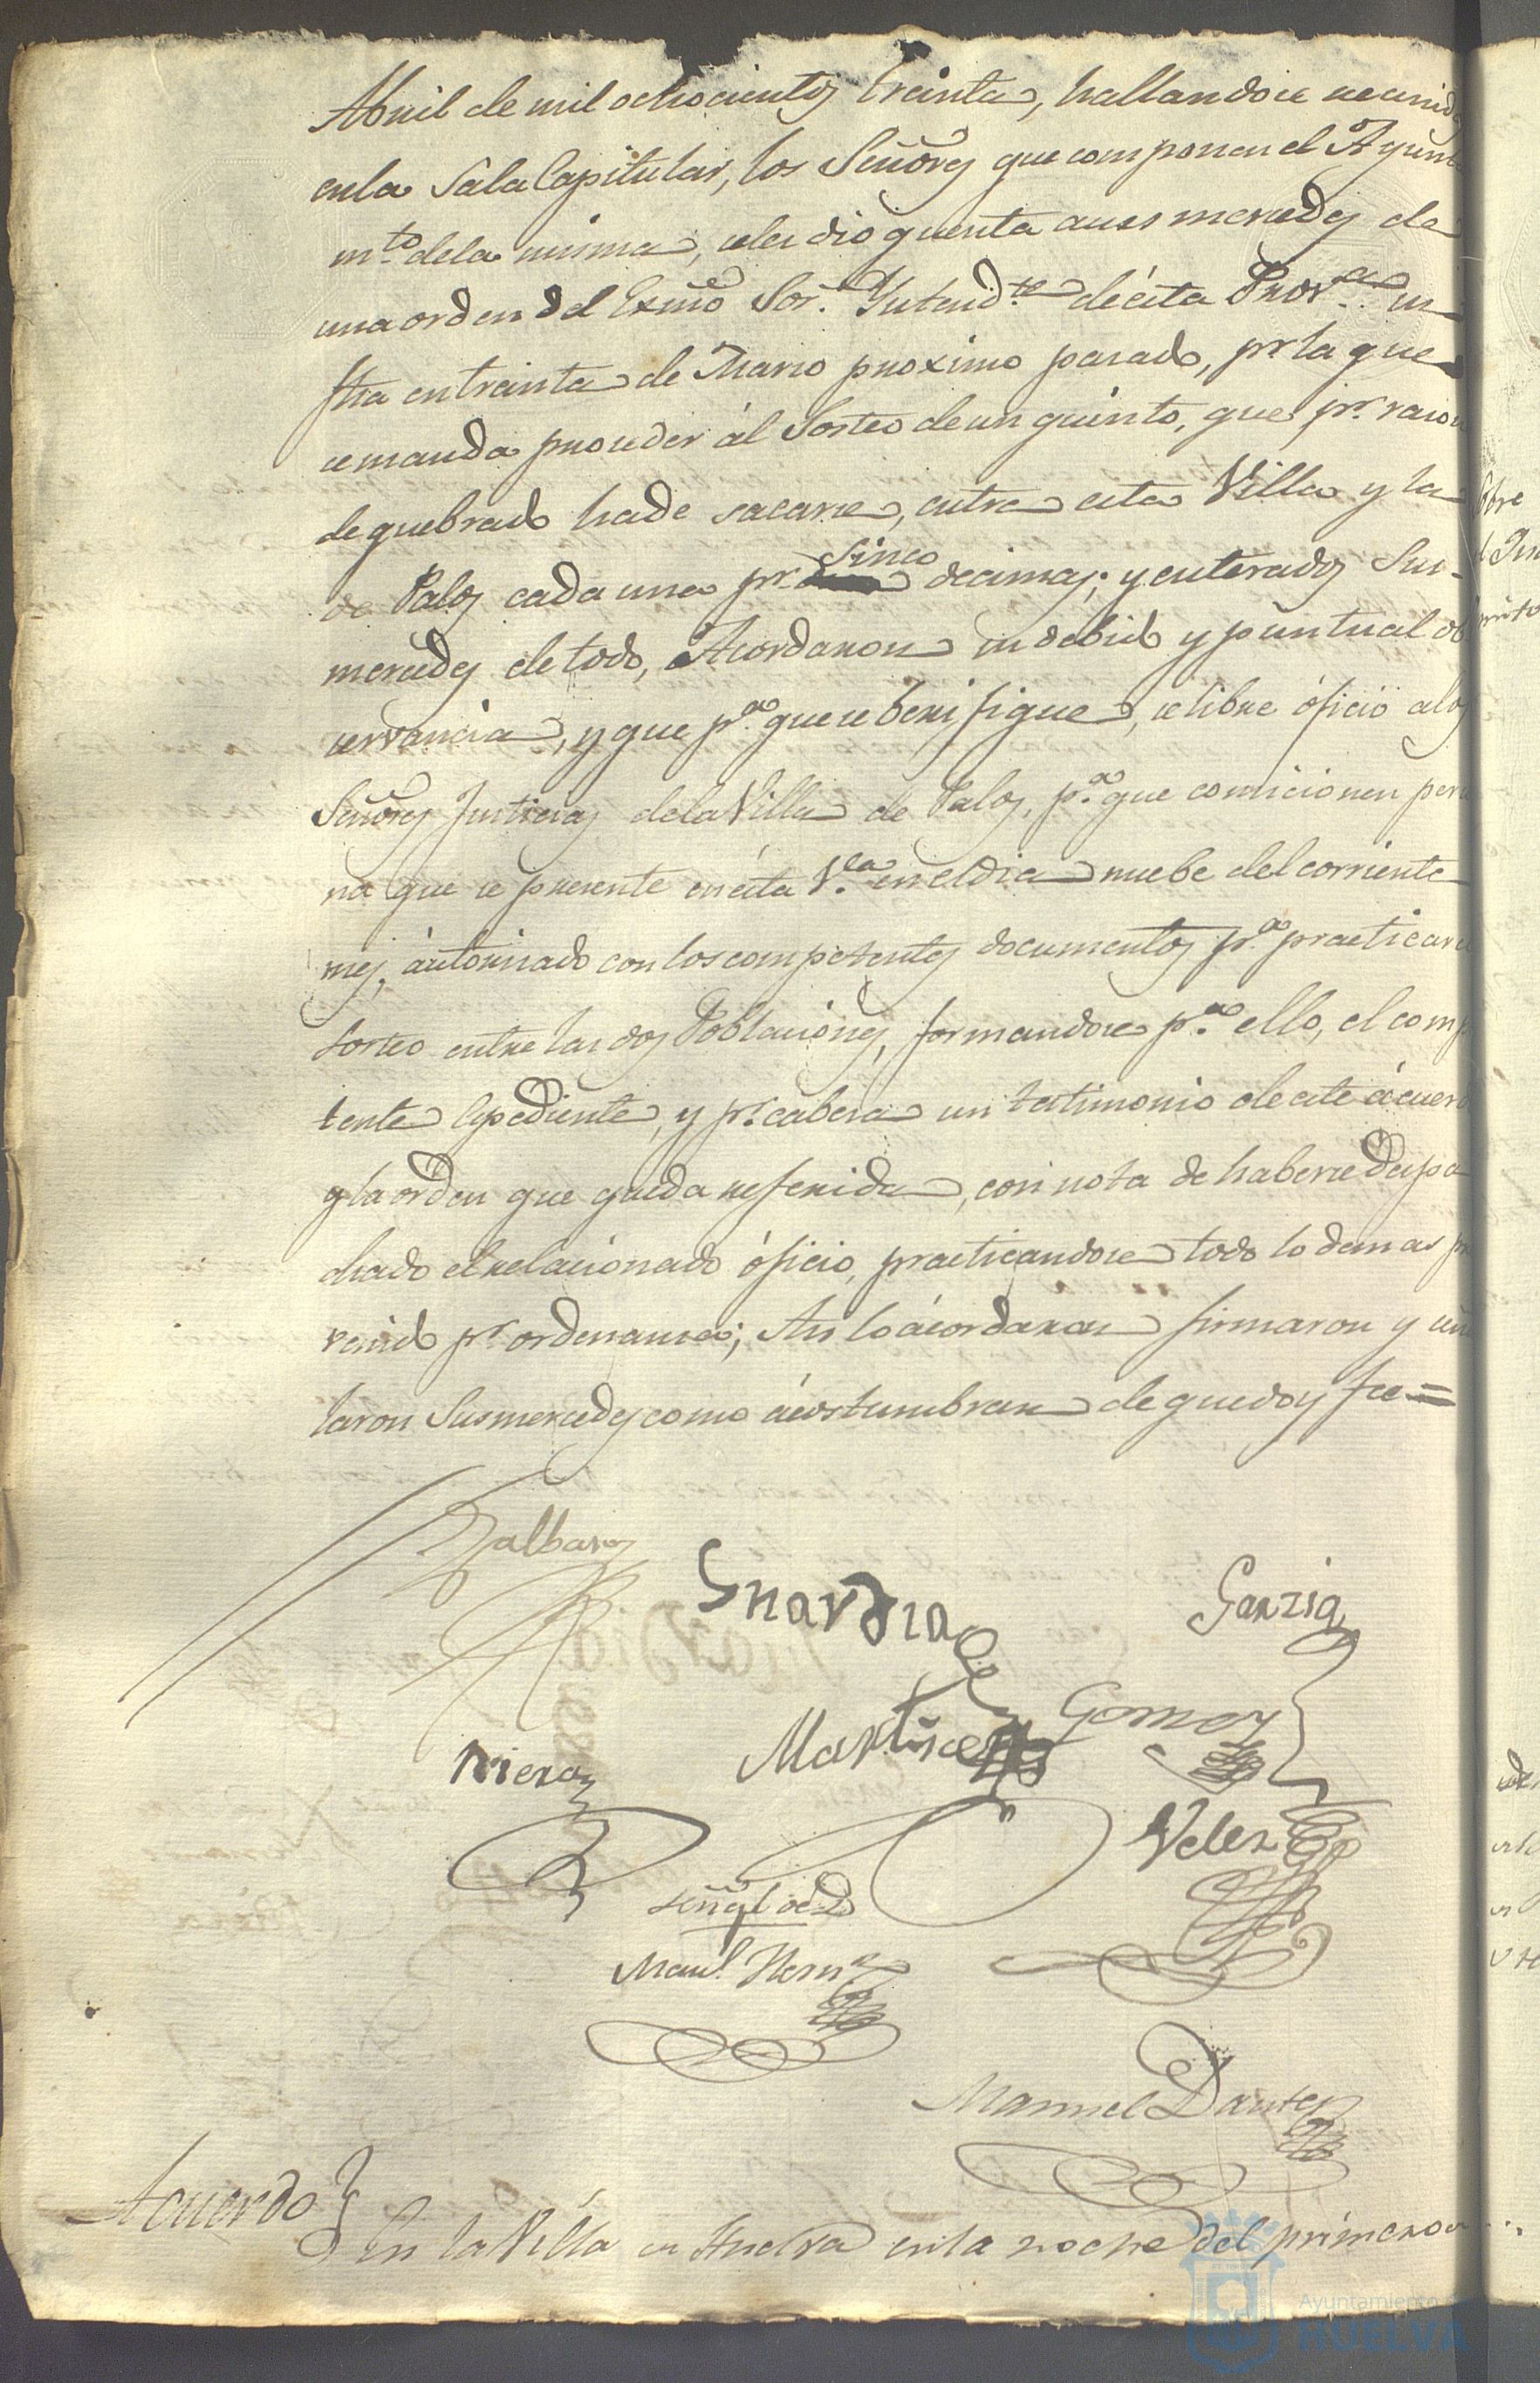 Abril de mil ochocientos treinta, hallandose reunidos
en la Sala Capitular, los Señores que componen el Ayunta
mto. de la misma, se les dio quenta a sus mercedes de
una orden del Exmo Sor. Yntendte. de ésta Prova. su
fha en treinta de Marso proximo pasado, pr. la que
se manda proseder ál Sorteo de un quinto, que pr. rason
de quebrado ha de sacarse, entre esta Villa y la
de Palos cada una pr. sinco decimas; y enterados Sus
mercedes de todo, Acordaron su debido y puntual ob
servancia, y que pa. que se berifique, se libre óficio a los
Señores Justicias de la Villa de Palos, pa. que comicionen perso
na que se presente en ésta Va. en el dia nuebe del corriente
mes, áutorisado con los competentes documentos pa. practicar el
Sorteo entre las dos Poblaciónes, formandose pa. ello, el compe
tente Espediente, y pr. cabesa un testimonio de este ácuerdo
y la orden que queda referida, con nota de haberse despa
chado el relacionado óficio, practicandose todo lo demas pre
venido pr. ordenansa; Asi lo ácordaron firmaron y señ
laron Sus mercedes como ácostumbran de que doy fee =
Galbaros
Guardia
Garzia
Martines
Gomes
Riera
Velez
señal de
Manl. Hernz
Manuel Dante
Acuerdo
En la Villa de Huelva en la noche del primero
Ayuntamiento
HUELVA